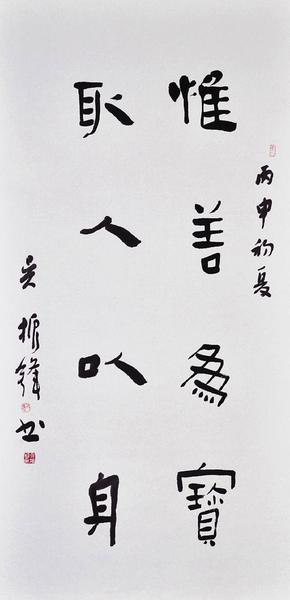 丙申初夏
惟善為寶
取人以身
吴振鋒书